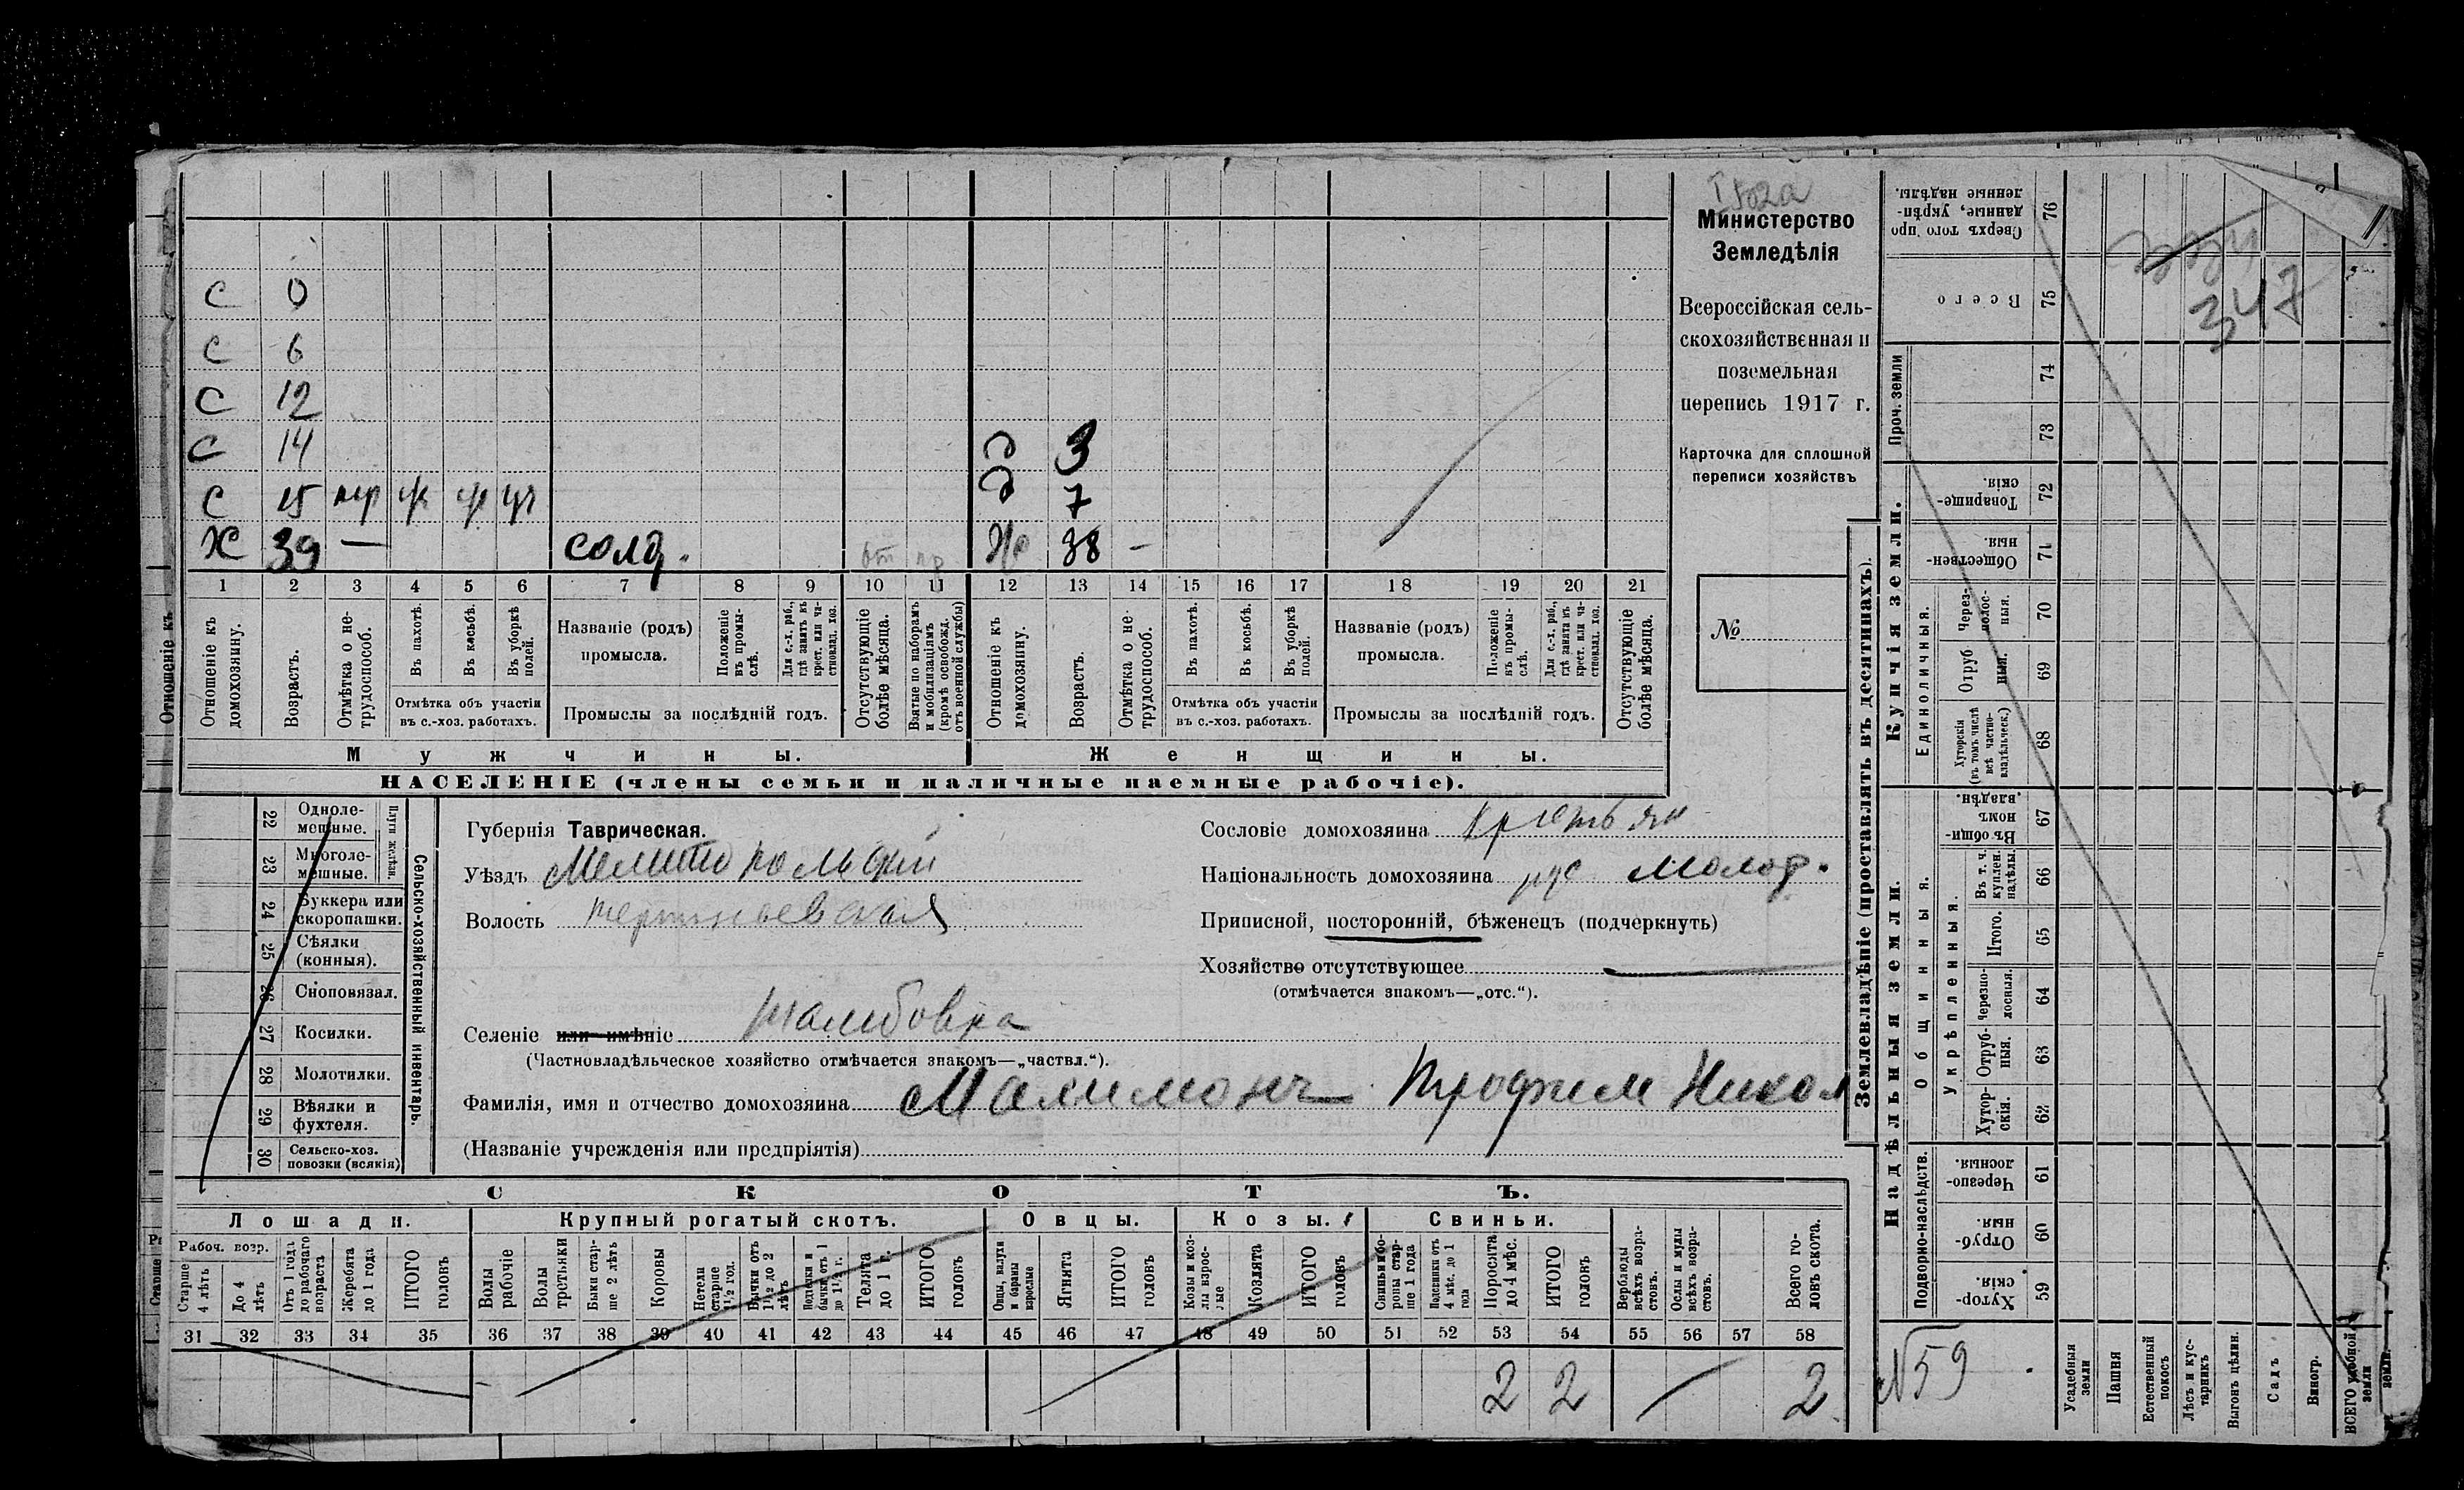 Министерство
Земледѣлія
Всероссійская сель-
скохозяйственная и
поземельная
перепись 1917 г.
Карточка для сплошной
переписи хозяйствъ
№
С 0
С 6
С 12
С 14
С 15
Х 39 —
солд.
д 3
д 7
Ж 38 —
1 2 3 4 5 6 7 8 9 10 11 12 13 14 15 16 17 18 19 20 21
Отношеніе къ домохозяину.
Возрастъ.
Отмѣтка о не-трудоспособ.
Въ пахотѣ.
Въ косьбѣ.
Въ уборкѣ полей.
Отмѣтка объ участіи
въ с.-хоз. работахъ.
Названіе (родъ)
промысла.
Положеніе въ промы-слѣ.
Для с.-х. раб., гдѣ занятъ въ крест. или ча-стновлад. хоз.
Промыслы за послѣдній годъ.
Отсутствующіе болѣе мѣсяца.
Взятые по наборамъ и мобилизаціямъ (кромѣ освобожд. отъ военной службы)
Отношеніе къ домохозяину.
Возрастъ.
Отмѣтка о не-трудоспособ.
Въ пахотѣ.
Въ косьбѣ.
Въ уборкѣ полей.
Отмѣтка объ участіи
въ с.-хоз. работахъ.
Названіе (родъ)
промысла.
Положеніе въ промы-слѣ.
Для с.-х. раб., гдѣ занята въ крест. или ча-стновлад. хоз.
Промыслы за послѣдній годъ.
Отсутствующіе болѣе мѣсяца.
Мужчины.
Женщины.
НАСЕЛЕНІЕ (члены семьи и наличные наемные рабочіе).
Сельско-хозяйственный инвентарь.
Плуги желѣзн.
22 Одноле-мешные.
23 Многоле-мешные.
24 Буккера или скоропашки.
25 Сѣялки (конныя).
26 Сноповязал.
27 Косилки.
28 Молотилки.
29 Вѣялки и фухтеля.
30 Сельско-хоз. повозки (всякія)
Губернія Таврическая.
Уѣздъ Мелитопольский
Волость
Селеніе или имѣніе
(Частновладѣльческое хозяйство отмѣчается знакомъ—„частвл.“).
Фамилія, имя и отчество домохозяина Малимонъ Трофим Никол
(Названіе учрежденія или предпріятія)
Сословіе домохозяина крестьян
Національность домохозяина рус молод.
Приписной, посторонній, бѣженецъ (подчеркнуть)
Хозяйство отсутствующее
(отмѣчается знакомъ—„отс.“).
СКОТЪ.
Лошади.
Крупный рогатый скотъ.
Овцы.
Козы.
Свиньи.
Рабоч. возр.
Старше 4 лѣтъ
До 4 лѣтъ
Отъ 1 года до рабочаго возраста
Жеребята до 1 года
ИТОГО головъ
Волы рабочіе
Волы третьяки
Быки стар-ше 2 лѣтъ
Коровы
Нетели старше 1½ год.
Бычки отъ 1½ до 2 лѣтъ
Подтелки и бычки отъ 1 до 1½ г.
Телята до 1 г.
ИТОГО головъ
Овцы, валухи и бараны взрослые
Ягнята
ИТОГО головъ
Козы и коз-лы взрос-лые
Козлята
ИТОГО головъ
Свиньи и бо-ровы стар-ше 1 года
Подсвинки отъ 4 мѣс. до 1 года
Поросята до 4 мѣс.
ИТОГО головъ
Верблюды всѣхъ возра-стовъ.
Ослы и мулы всѣхъ возра-стовъ.
Всего го-ловъ скота.
31 32 33 34 35 36 37 38 39 40 41 42 43 44 45 46 47 48 49 50 51 52 53 54 55 56 57 58
2 2 2
Землевладѣніе (проставлять въ десятинахъ).
Купчія земли.
Надѣльныя земли.
Проч. земли
Единоличныя.
Общинныя.
Укрѣпленныя.
Подворно-наслѣдств.
Сверхъ того про-данные, укрѣп-ленные надѣлы. 76
Всего 75
74
73
Товарище-скія. 72
Обществен-ныя. 71
Через-полос-ныя. 70
Отруб-ныя. 69
Хуторскія (въ томъ числѣ всѣ частно-владѣльческ.) 68
Въ общин-номъ владѣн. 67
Въ т. ч. куплен. надѣлы. 66
Итого. 65
Черезпо-лосныя. 64
Отруб-ныя. 63
Хутор-скія. 62
Черезпо-лосныя. 61
Отруб-ныя. 60
Хутор-скія. 59
347
№59
Усадебныя земли
Пашня
Естественный покосъ
Лѣсъ и кус-тарникъ
Выгонъ цѣлин.
Садъ
Виногр.
ВСЕГО удобной земли
земли.
Отношеніе къ
Старше